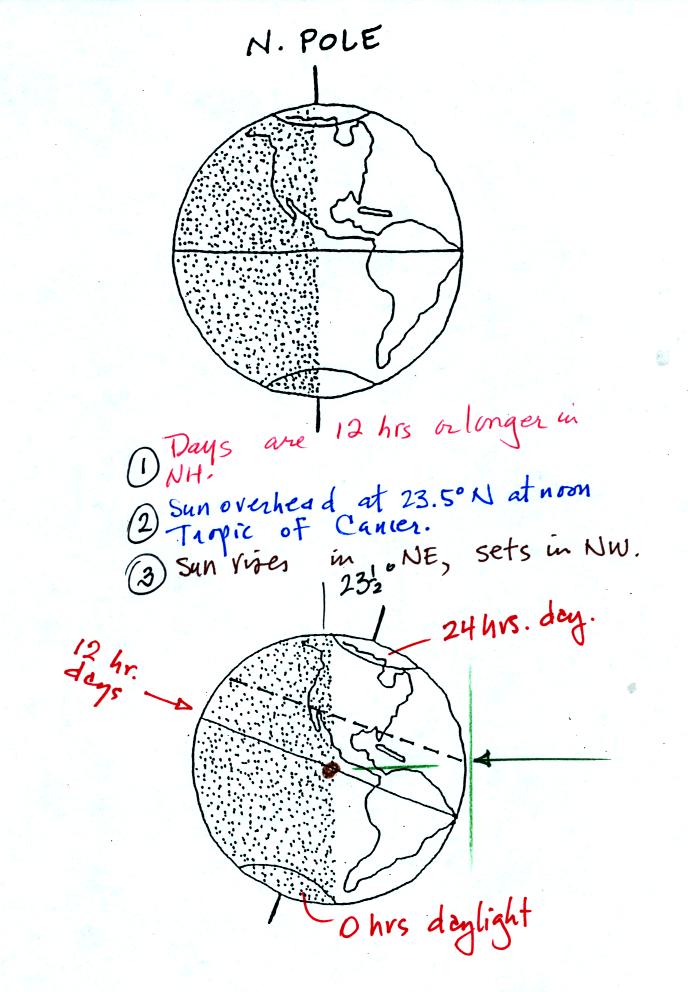 N. POLE
① Days are 12 hrs or longer in
NH.
② Sun overhead at 23.5° N at noon
Tropic of Cancer.
③ Sun rises in NE, sets in NW.
23½°
24 hrs. day.
12 hr.
days
0 hrs daylight